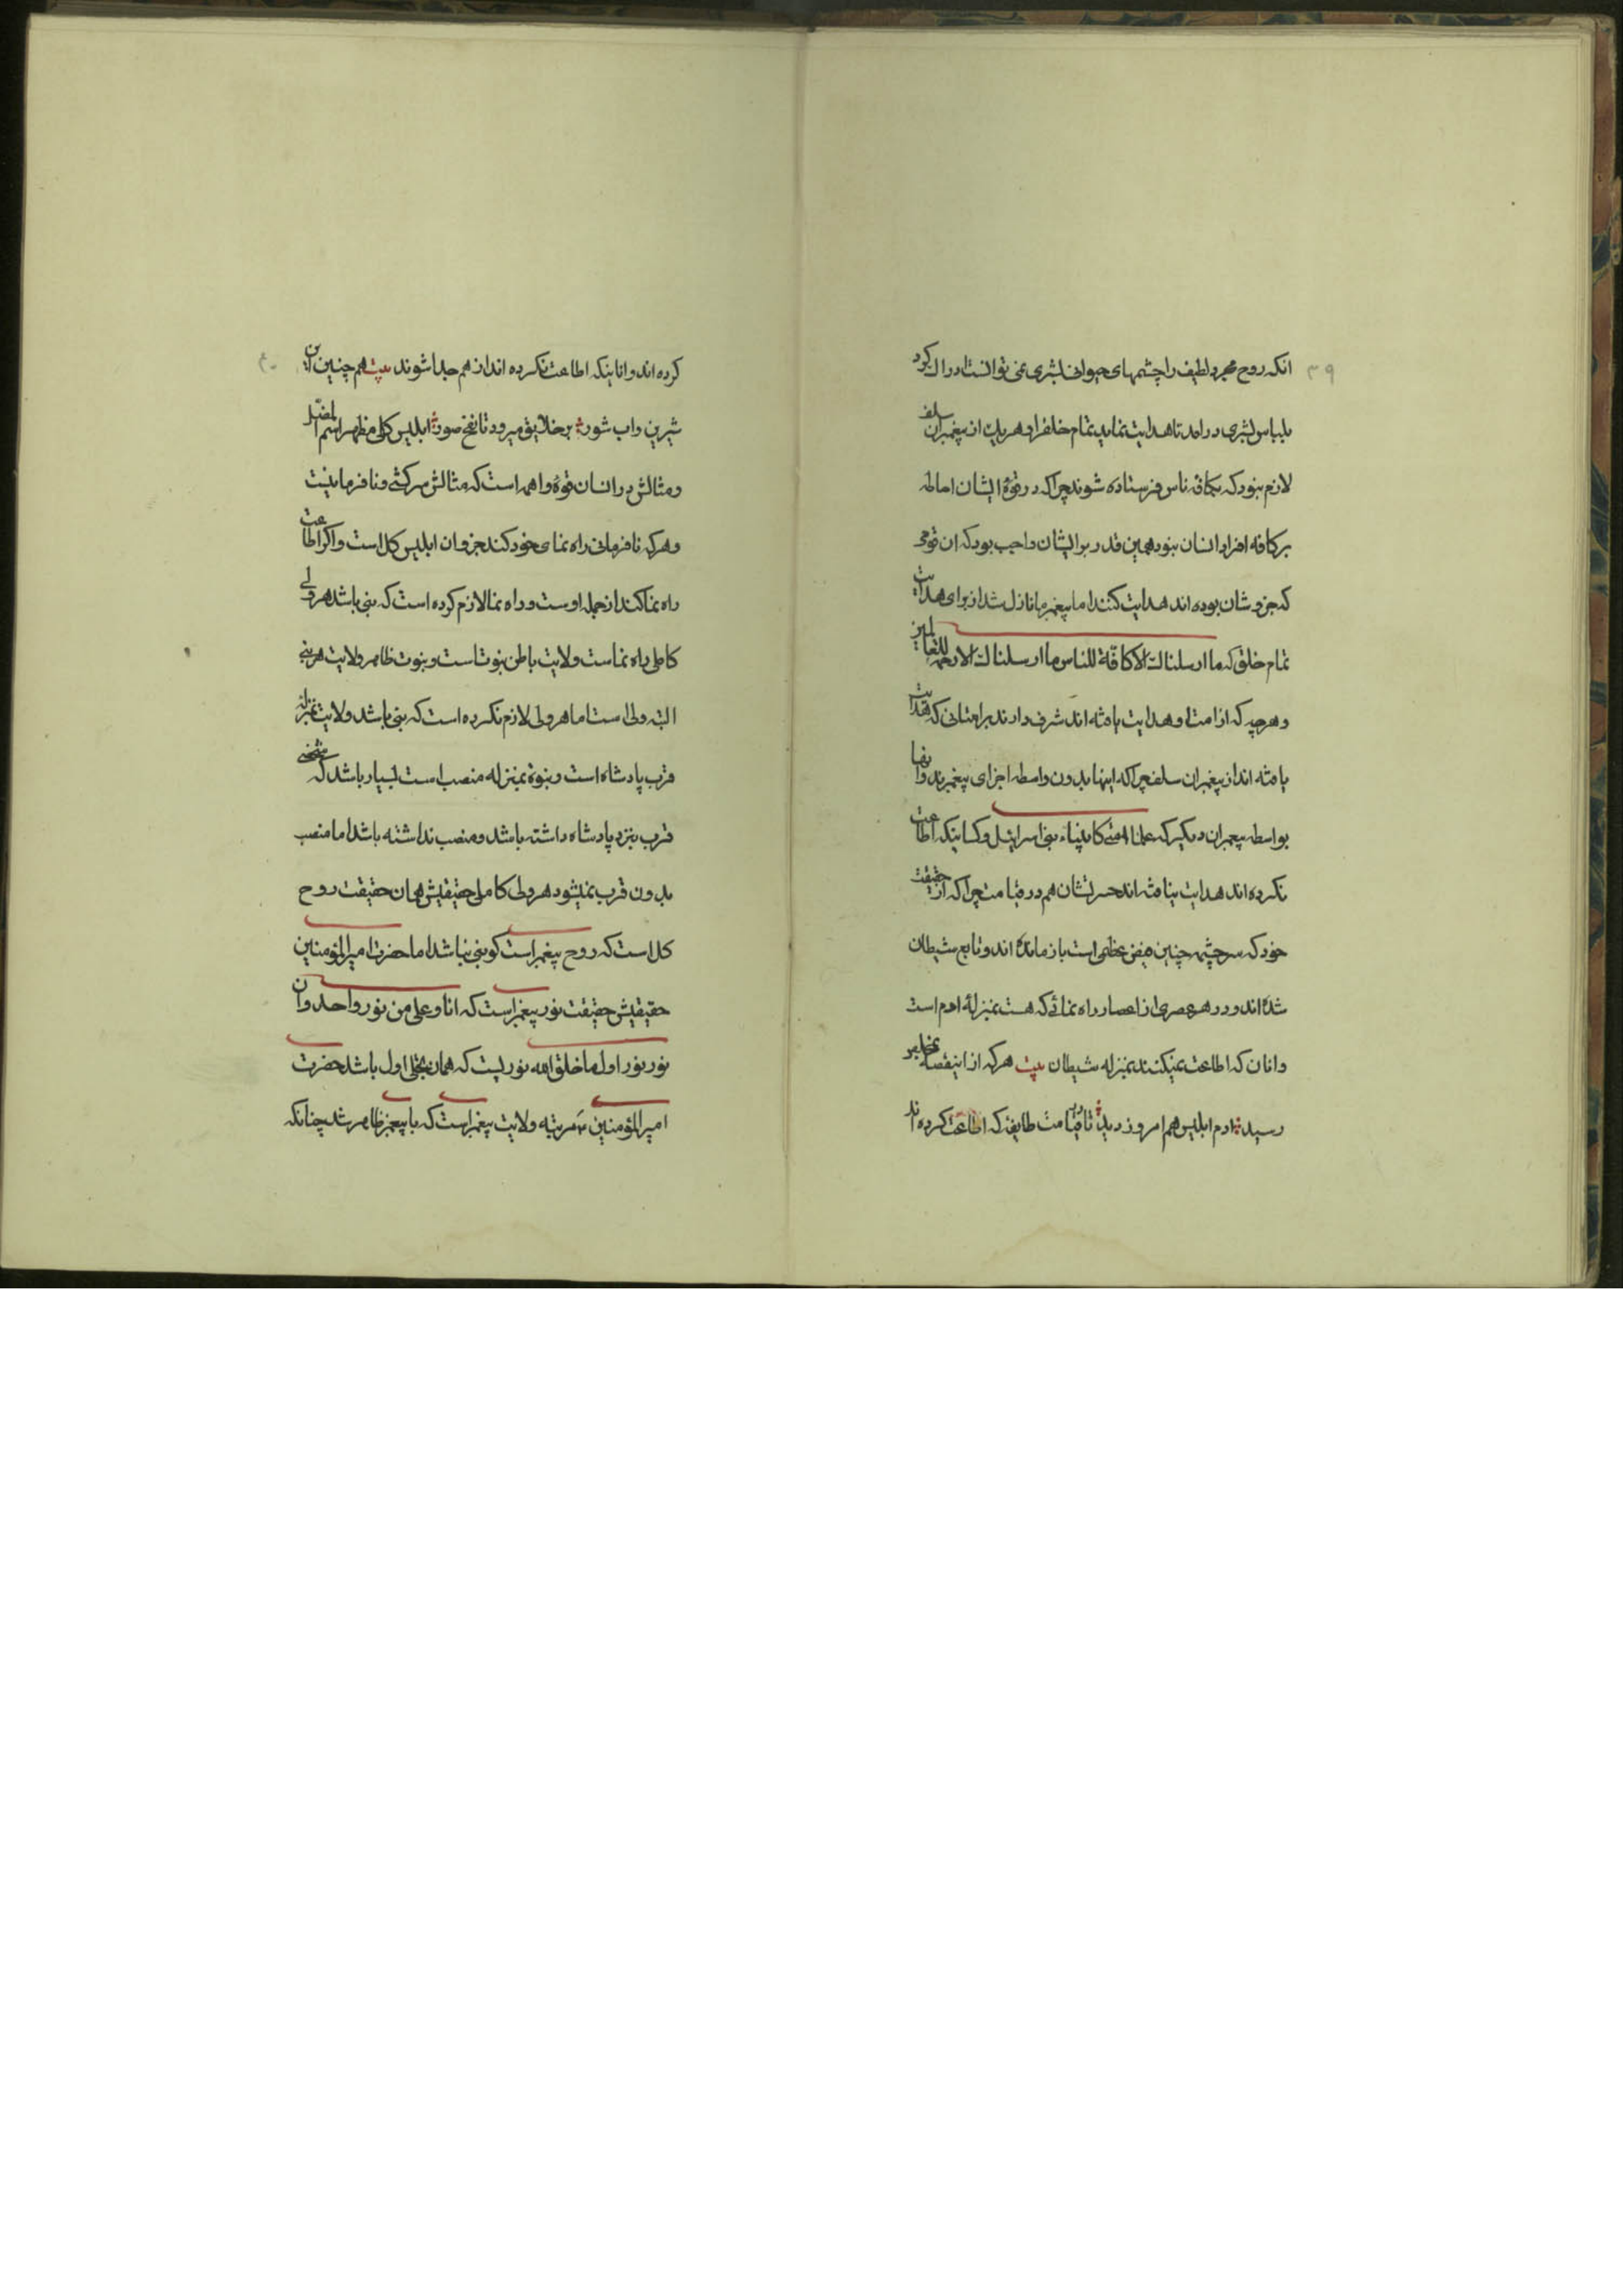 ۳۹
انکه روح مجرد لطیف را چشمهای حیوانی بشری نمی توانست ادراک کرد
بلباس بشری درامد تا هدایت نماید تمام خلق را و هر یک از پیغمبران سلف
لازم نبود که بکافه ناس فرستاده شوند چرا که در قوهٔ ایشان احاطه
بر کافه افراد انسان نبود همین قدر بر ایشان واجب بود که ان قومی
که جزوشان بوده اند هدایت کنند اما پیغمبر ما نازل شد از برای هدایت
تمام خلق که ما ارسلناک الا کافّة للناس ما ارسلناک الا رحمة للعالمین
و هر چه که از امت او هدایت یافته اند شرف دارند بر امتانی که هدایت
یافته اند از پیغمبران سلف چرا که اینها بدون واسطه اجزای پیغمبرند و انها
بواسطه پیغمبران دیگر که علماء امتی کانبیاء بنی اسرائیل و کسانیکه اطاعت
نکرده اند هدایت نیافته اند حسرتشان هم در قیامت چرا که از حقیقت
خود که سرچشمه چنین فیض عظمی است باز مانده اند و تابع شیطان
شده اند و در هر عصری از اعصار راه نمائی که هست بمنزلهٔ ادم است
و انان که اطاعت نمیکنند بمنزله شیطان بیت هر که از اینقصه
رسید ادم ابلیس هم امروز دید تا قیامت طایفه که اطاعت کرده اند
۴۰
کرده اند و انانیکه اطاعت نکرده اند از هم جدا شوند بیت هم چنین این
شیرین واب شور بر خلایق میرود تا نفخ صور ابلیس کلی مظهر اسم المضّل
و مثالش در انسان قوهٔ واهمه است که مثالش سرکشی و نافرمانیت
و هر که نافرمانی راه نمای خود کند جزو ان ابلیس کل است و اکر اطاعت
راه نما کند از جمله اوست و راه نما لازم کرده است که نبی باشد هر ولی
کاملی راه نماست ولایت باطن نبوت است و نبوت ظاهر ولایت هر نبی
البته ولی است اما هر ولی لازم نکرده است که نبی باشد ولایت بمنزله
قرب پادشاه است و نبوة بمنزله منصب است بسیار باشد که شخصی
قرب بنزد پادشاه داشته باشد و منصب نداشته باشد اما منصب
بدون قرب نمیشود هر ولی کاملی حقیقتش همان حقیقت روح
کل است که روح پیغمبر است کو نبی نباشد اما حضرت امیرالمؤمنین
حقیقتش حقیقت نور پیغمبر است که انا و علی من نور واحد و ان
نور نور اول ما خلق الله نوریست که همان تجلی اول باشد حضرت
امیرالمؤمنین مرتبه ولایت پیغمبر است که با پیغمبر ظاهر شد چنانکه